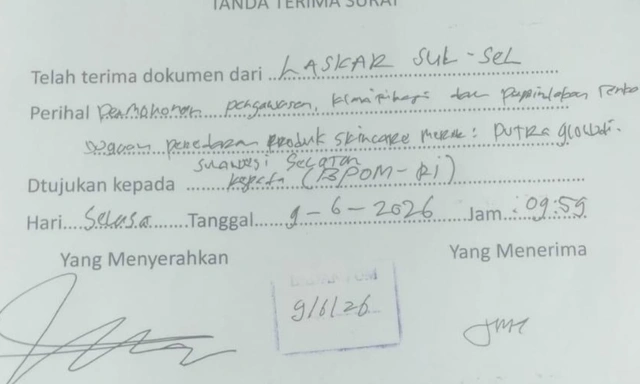 TANDA TERIMA SURAT
Telah terima dokumen dari LASKAR SUL-SEL
Perihal Permohonan pengawasan, klarifikasi dan
dugaan peredaran produk skincare merek: PUTRA
SULAWESI SELATAN
Dtujukan kepada kepala (BPOM-Ri)
Hari Selasa Tanggal 9-6-2026 Jam: 09:59
Yang Menyerahkan Yang Menerima
9/6/26